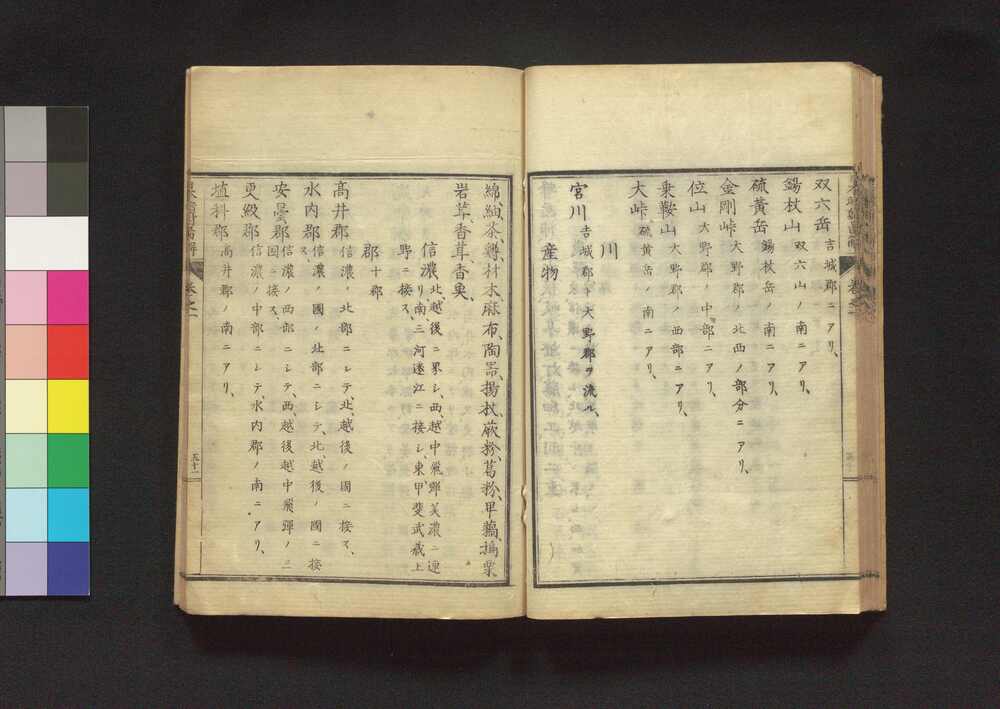 双六岳 吉城郡ニアリ、
錫杖山 双六山ノ南ニアリ、
硫黄岳 錫杖岳ノ南ニアリ、
金剛峠 大野郡ノ北西ノ部分ニアリ、
位山 大野郡ノ中部ニアリ、
乗鞍山 大野郡ノ西部ニアリ、
大峠 硫黄岳ノ南ニアリ、
川
宮川 吉城郡ト大野郡ヲ流ル、
産物
綿、紬、茶、材木、麻布、陶器、揚枝、蕨粉、葛粉、甲栗
岩茸、香茸、香魚、
信濃 北、越後ニ界シ、西、越中飛騨美濃ニ連
リ、南、三河遠江ニ接シ、東、甲斐武蔵上
野ニ接ス、
郡 十郡
高井郡 信濃ノ北部ニシテ、北、越後ノ國ニ接ス、
水内郡 信濃ノ國ノ北部ニシテ、北、越後ノ國ニ接
ス、
安曇郡 信濃ノ西部ニシテ、西、越後越中飛騨ノ三
国ニ接ス、
更級郡 信濃ノ中部ニシテ、水内郡ノ南ニアリ、
埴科郡 高井郡ノ南ニアリ、
五十一